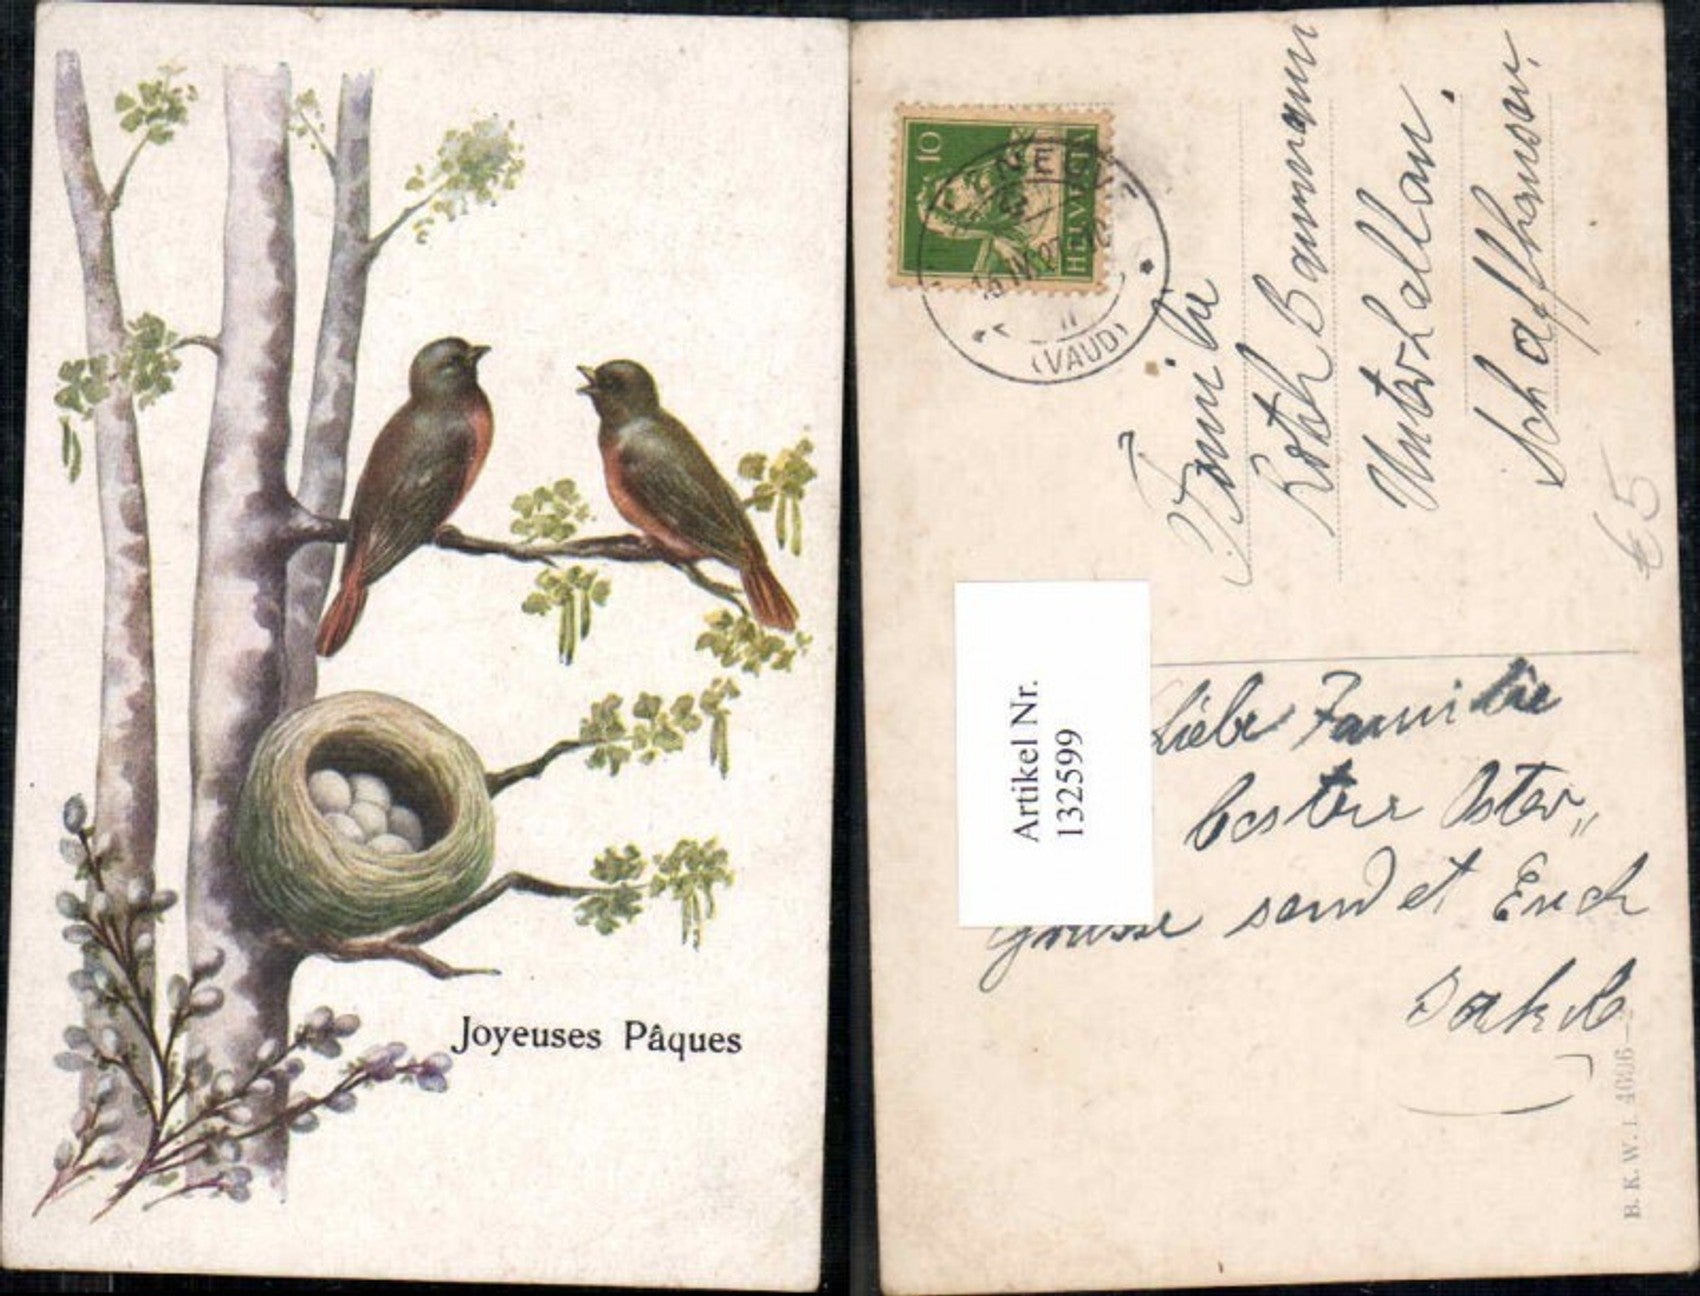 Joyeuses Pâques
10
HELVETIA
(VAUD)
Familie
Roth Baumann
Unterhallau.
Schaffhausen.
€ 5
Artikel Nr.
132599
Liebe Familie
beste Oster„
grüsse sendet Euch
B. K. W. I. 4606-